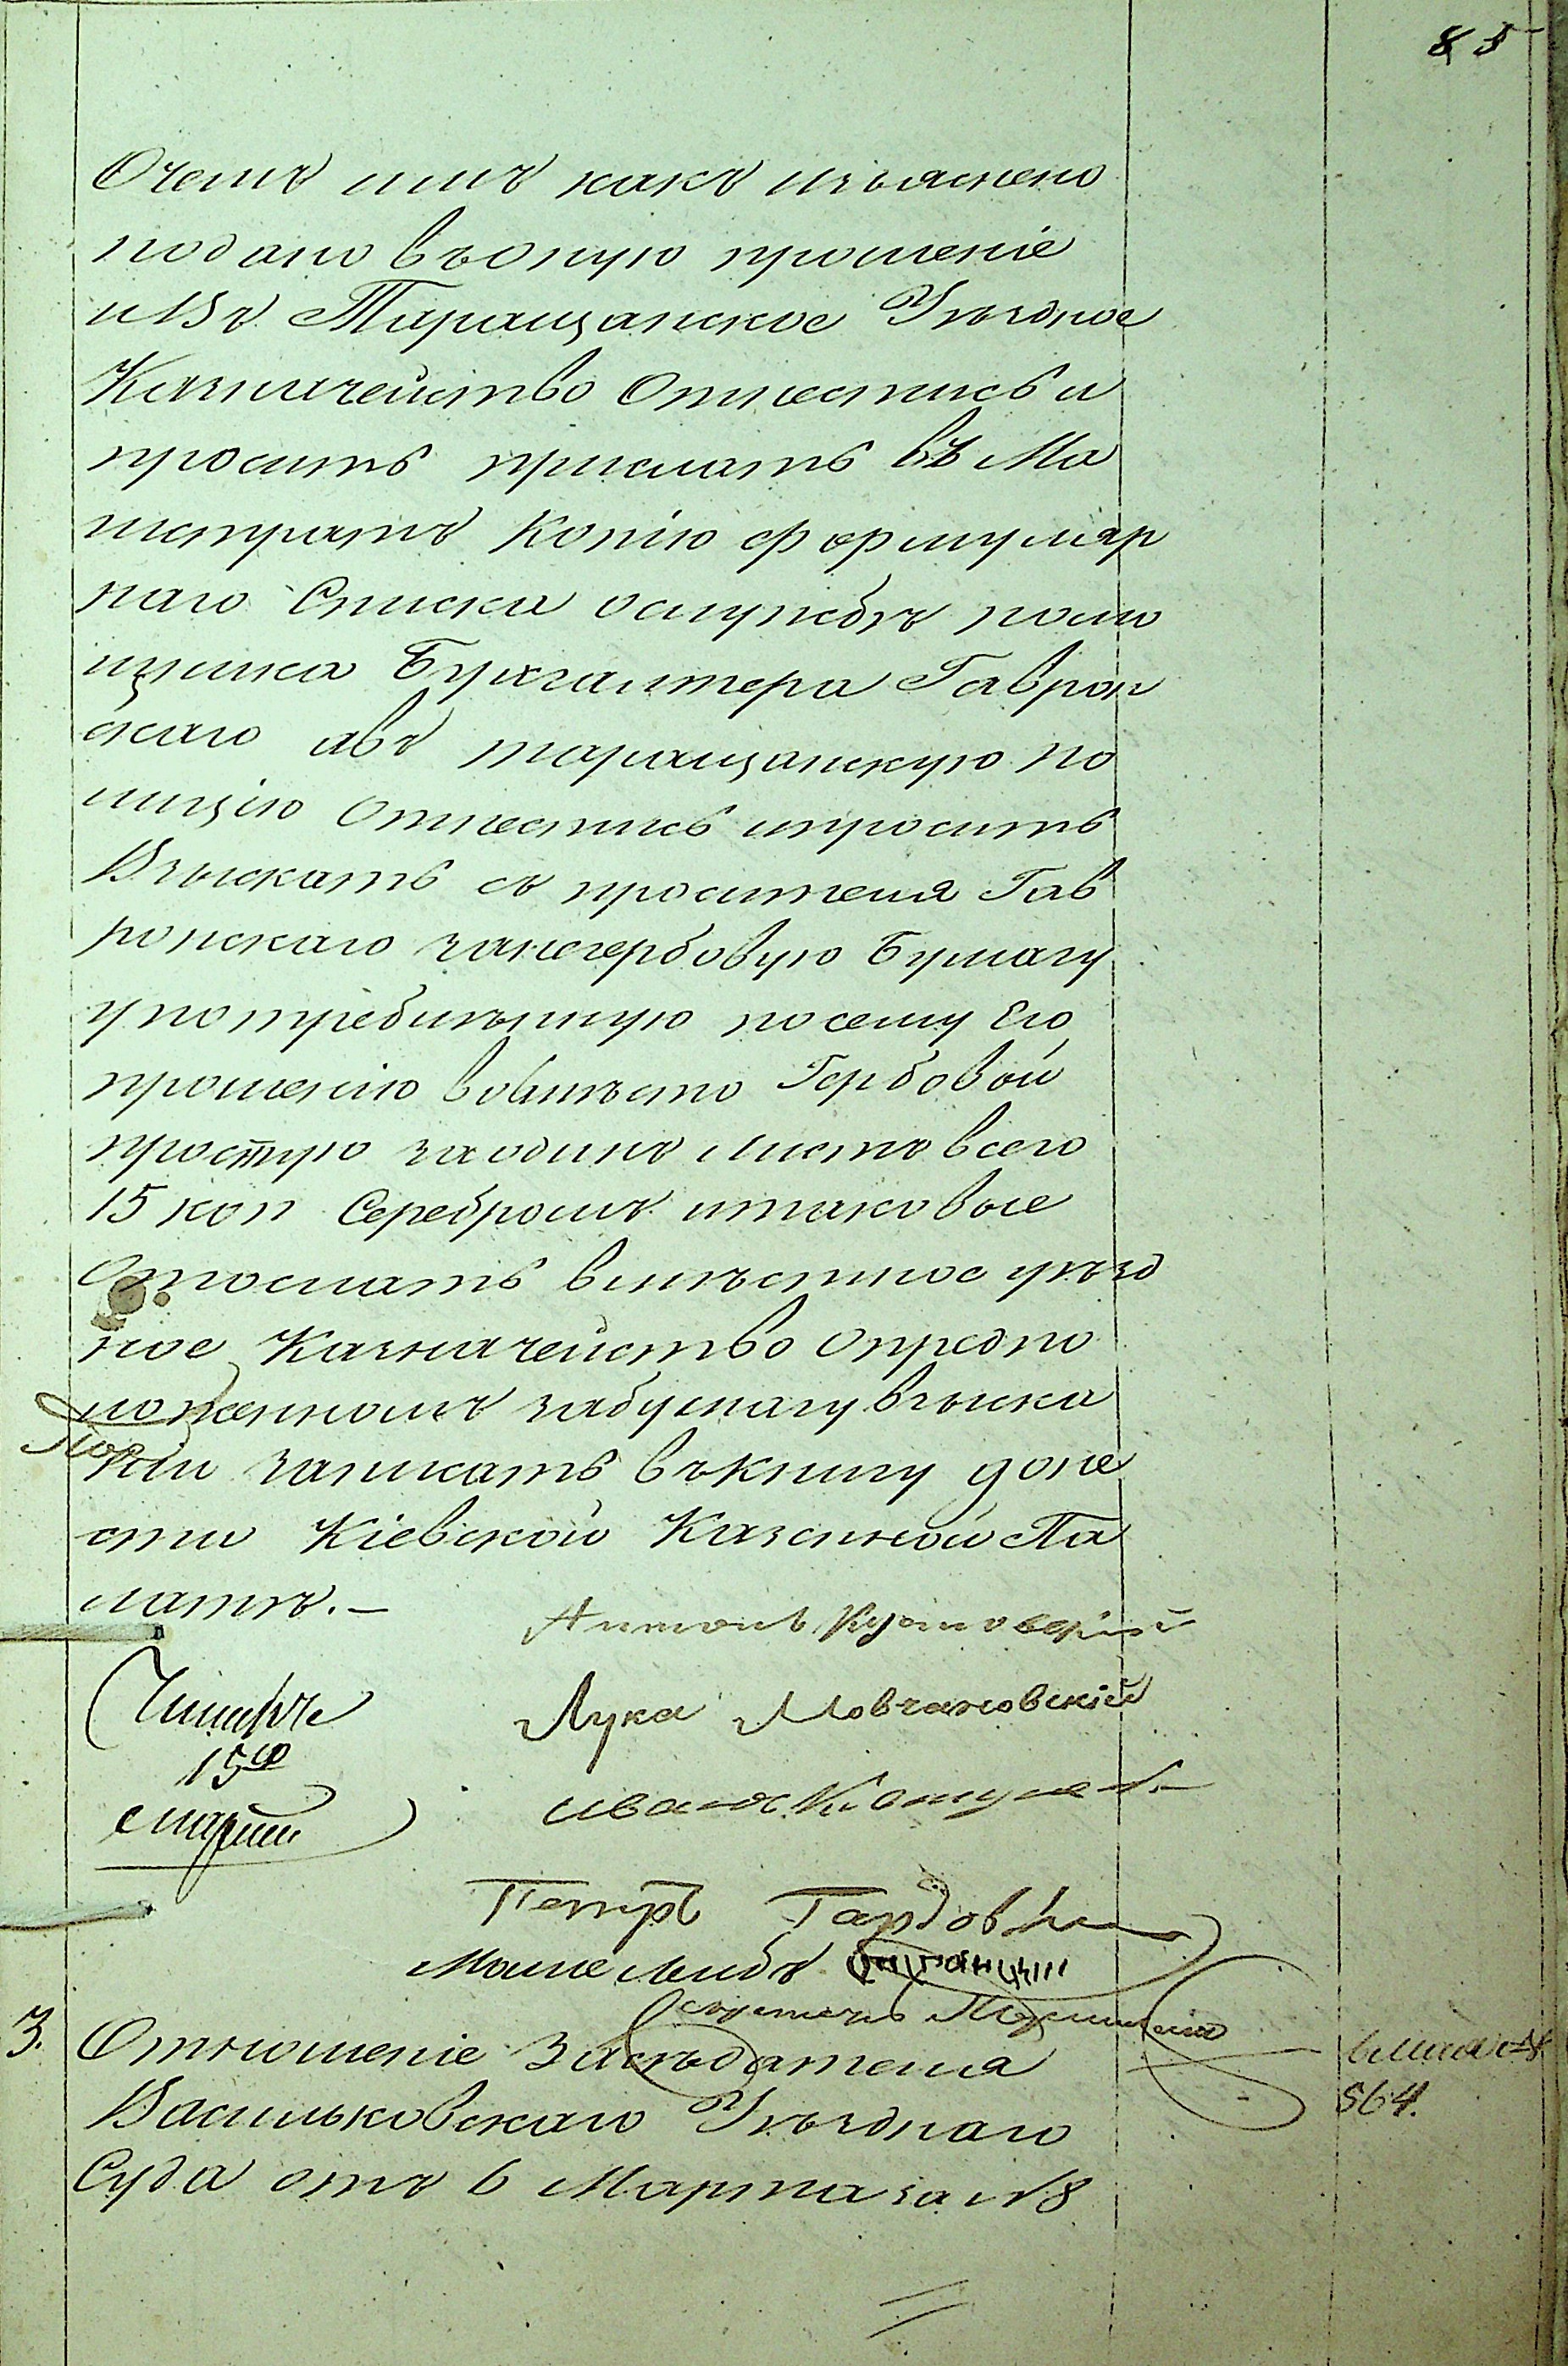 85
Очемъ имъ какъ изъяснено
подано въоную прошеніе
и Въ Таращанское Уѣздное
Казначейство Отнестись и
просить прислать въ Ма
гистратъ Копію формуляр
наго Списка ослужбѣ помо
щника Бухгалтера Гаврон
скаго авъ таращанскую по
лицію Отнестись ипросить
Взыскать съ просителя Гав
ронскаго занегербовую Бумагу
употребленную посему Его
прошенію вовмѣсто Гербовой
простую заодинъ листъ всего
15 коп Серебромъ итаковые
Отослать вмѣстное уѣзд
ное Казначейство Опредпо
ложенномъ забумагу взыска
ніи записать въкнигу доне
сти Кіевской Казенной Па
латѣ.—
Антонъ
Лука Мовчановскій
15
Иванъ
Петръ
Мошко Лейбъ
Секретарь
3. Отношеніе Засѣдателя
Васильковскаго Уѣзднаго
Суда отъ 6 Марта за №8
564.